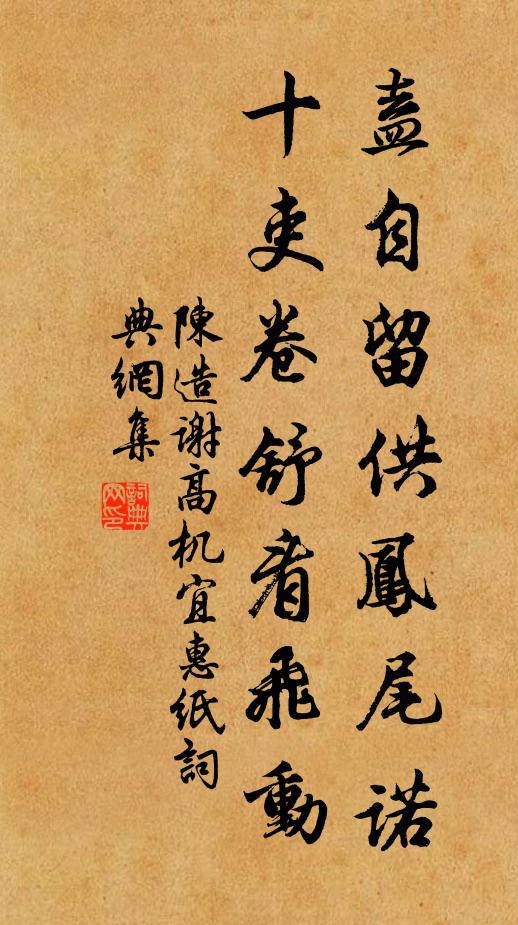 盍自留供鳳尾諾
十吏卷舒看飛動
陳造謝高机宜惠紙詞
典網集
詞典
网印